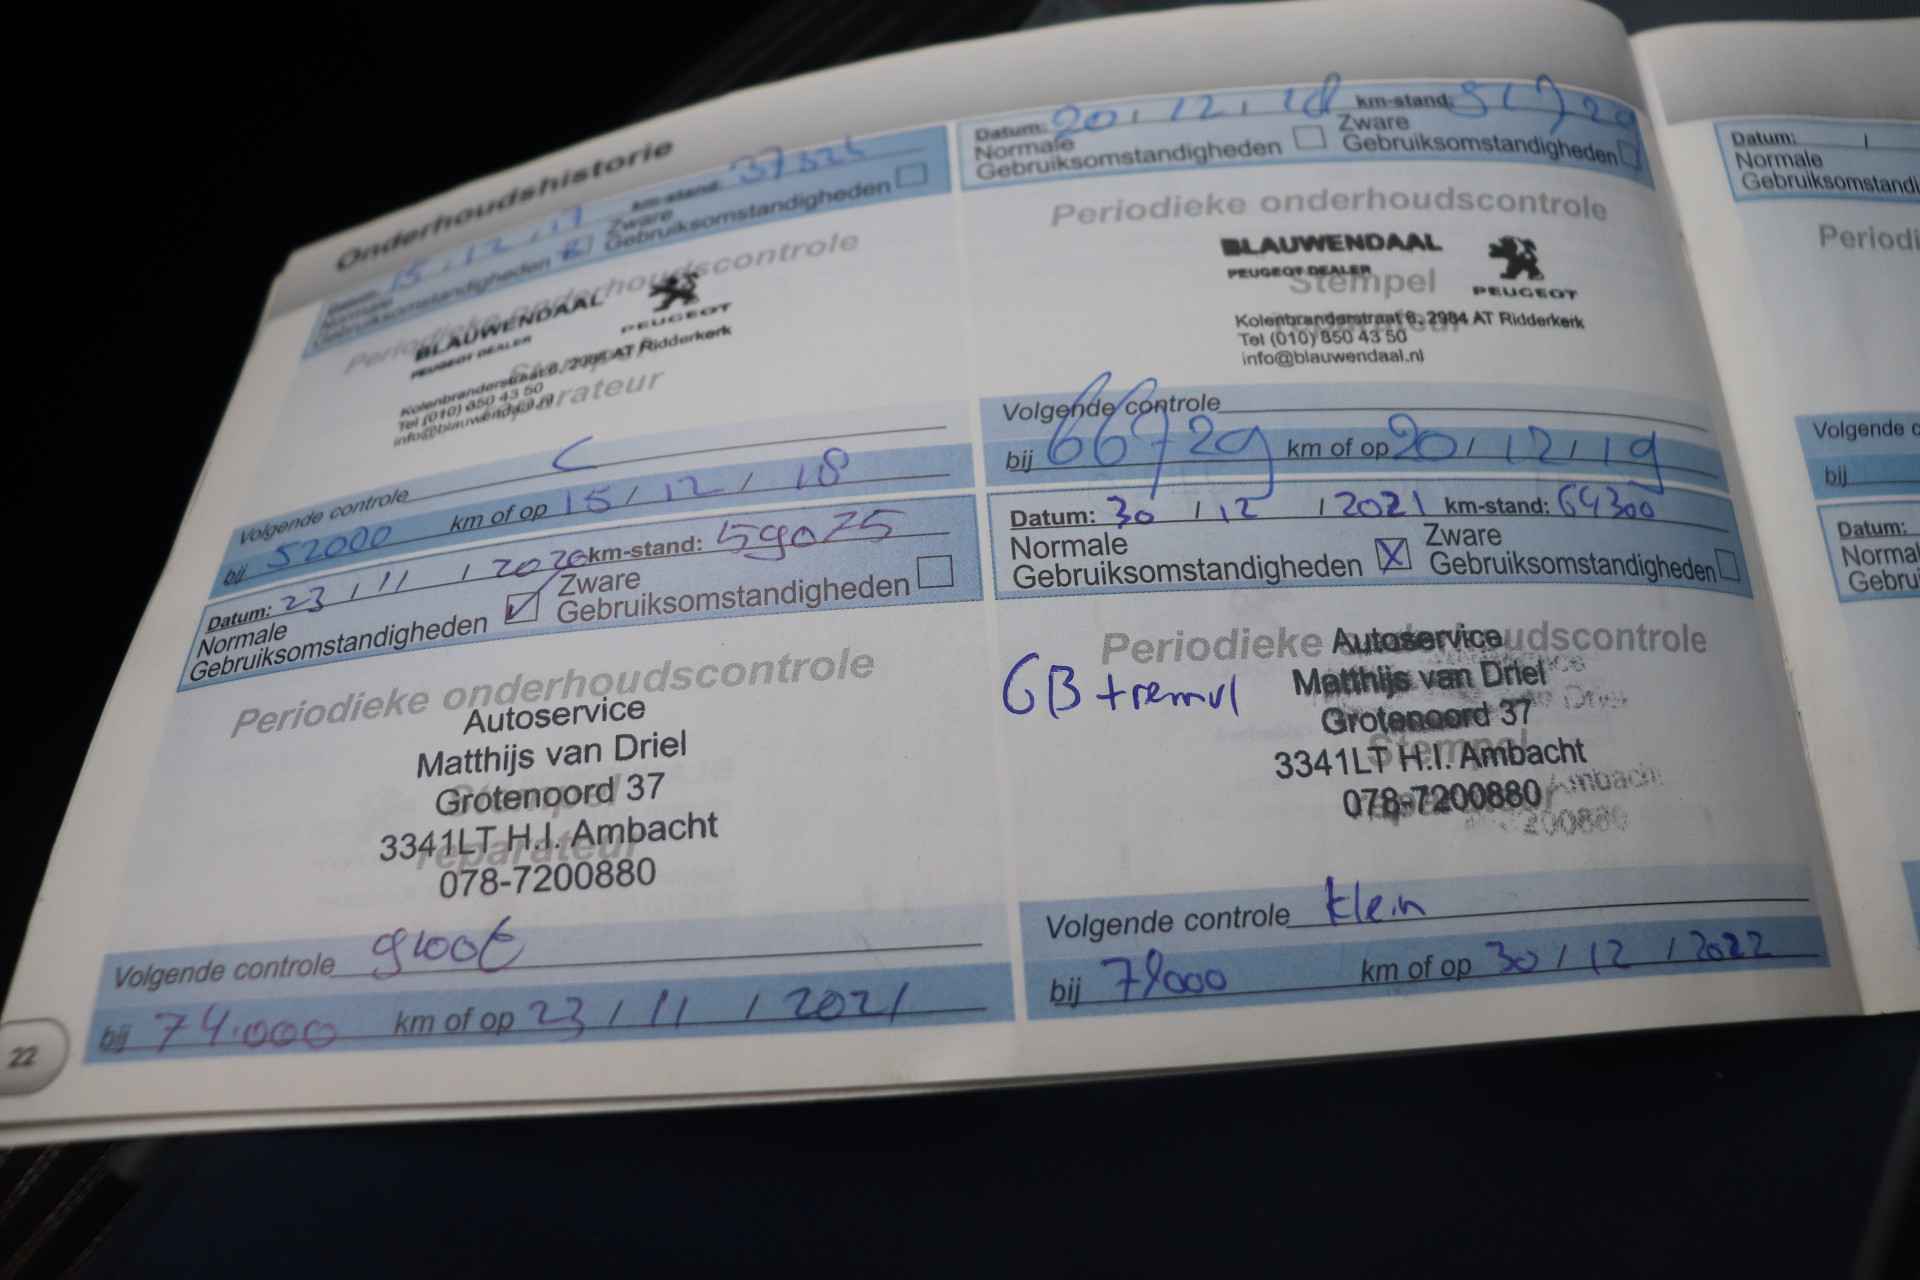 Onderhoudshistorie
Datum: 15 / 12 / 17 km-stand:
Normale
Gebruiksomstandigheden
Zware
Gebruiksomstandigheden
Periodieke onderhoudscontrole
BLAUWENDAAL
PEUGEOT DEALER
PEUGEOT
Stempel
Kolenbranderstraat 6, 2984 AT Ridderkerk
Tel (010) 850 43 50
info@blauwendaal.nl
reparateur
Volgende controle C
bij 52000 km of op 15 / 12 / 18
Datum: 20 / 12 / 18 km-stand:
Normale
Gebruiksomstandigheden
Zware
Gebruiksomstandigheden
Periodieke onderhoudscontrole
BLAUWENDAAL
PEUGEOT DEALER
PEUGEOT
Stempel
Kolenbranderstraat 6, 2984 AT Ridderkerk
Tel (010) 850 43 50
info@blauwendaal.nl
Volgende controle
bij 66729 km of op 20 / 12 / 19
Datum: 23 / 11 / 2020 km-stand: 59025
Normale
Gebruiksomstandigheden
Zware
Gebruiksomstandigheden
Periodieke onderhoudscontrole
Autoservice
Matthijs van Driel
Stempel
Grotenoord 37
3341LT H.I. Ambacht
reparateur
078-7200880
Volgende controle groot
bij 74.000 km of op 23 / 11 / 2021
Datum: 30 / 12 / 2021 km-stand: 64300
Normale
Gebruiksomstandigheden X
Zware
Gebruiksomstandigheden
Periodieke onderhoudscontrole
GB + remvl
Autoservice
Matthijs van Driel
Grotenoord 37
Stempel
3341LT H.I. Ambacht
078-7200880
Volgende controle klein
bij 79000 km of op 30 / 12 / 2022
22
Datum: /
Normale
Volgende
bij
Datum: